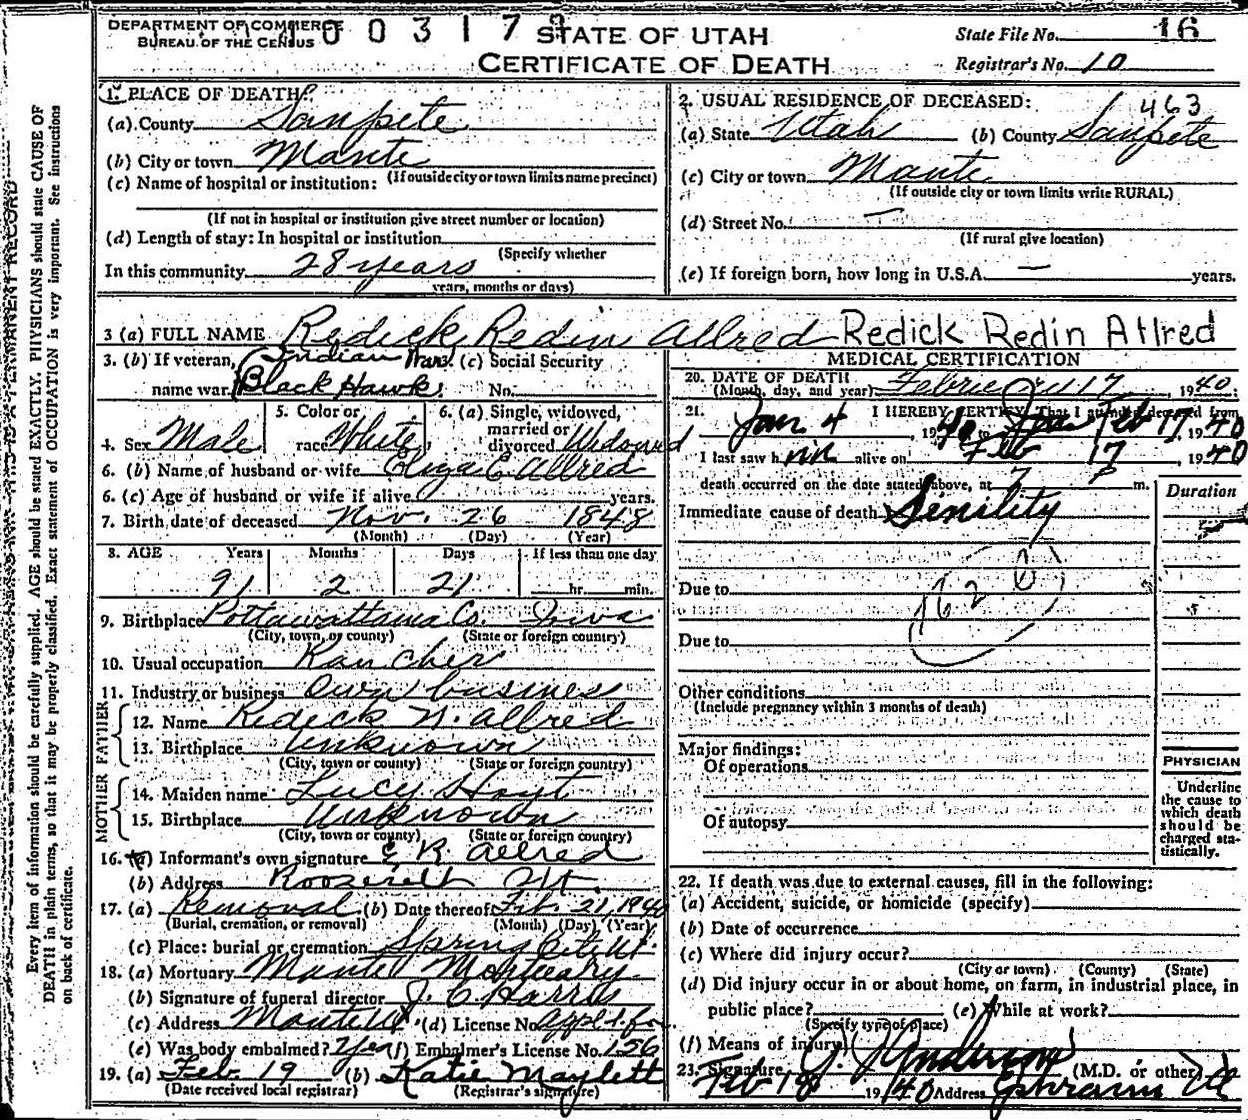 DEPARTMENT OF COMMERCE
BUREAU OF THE CENSUS
0 0 3 1 7 9
STATE OF UTAH
CERTIFICATE OF DEATH
State File No. 16
Registrar's No. 10
Every item of information should be carefully supplied. AGE should be stated EXACTLY. PHYSICIANS should state CAUSE OF
DEATH in plain terms, so that it may be properly classified. Exact statement of OCCUPATION is very important. See instructions
on back of certificate.
1. PLACE OF DEATH:
(a) County Sanpete
(b) City or town Manti
(If outside city or town limits name precinct)
(c) Name of hospital or institution:
(If not in hospital or institution give street number or location)
(d) Length of stay: In hospital or institution
(Specify whether
In this community 28 years
years, months or days)
2. USUAL RESIDENCE OF DECEASED:
1463
(a) State Utah (b) County Sanpete
(c) City or town Manti
(If outside city or town limits write RURAL)
(d) Street No. —
(If rural give location)
(e) If foreign born, how long in U.S.A. — years.
3 (a) FULL NAME Redick Redin Allred Redick Redin Allred
3. (b) If veteran, Indian Wars (c) Social Security
name war Black Hawk No.
4. Sex Male
5. Color or race White
6. (a) Single, widowed, married or divorced Widowed
6. (b) Name of husband or wife Eliza C Allred
6. (c) Age of husband or wife if alive years.
7. Birth date of deceased Nov. 26 1848
(Month) (Day) (Year)
8. AGE Years Months Days If less than one day
91 2 21 hr. min.
9. Birthplace Pottawattama Co. Iowa
(City, town, or county) (State or foreign country)
10. Usual occupation Rancher
11. Industry or business Own business
FATHER
12. Name Redick N. Allred
13. Birthplace Unknown
(City, town or county) (State or foreign country)
MOTHER
14. Maiden name Lucy Hoyt
15. Birthplace Unknown
(City, town or county) (State or foreign country)
16. (a) Informant's own signature E R. Allred
(b) Address Roosevelt Ut.
17. (a) Removal (b) Date thereof Feb. 21, 1940
(Burial, cremation, or removal) (Month) (Day) (Year)
(c) Place: burial or cremation Spring City Ut.
18. (a) Mortuary Manti Mortuary
(b) Signature of funeral director J. C. Harris
(c) Address Manti Ut. (d) License No. appl. for
(e) Was body embalmed? Yes (f) Embalmer's License No. 156
19. (a) Feb 19 (b) Katie Maylett
(Date received local registrar) (Registrar's signature)
MEDICAL CERTIFICATION
20. DATE OF DEATH
(Month, day, and year) February 17, 1940
21. I HEREBY CERTIFY, That I attended deceased from
Jan 4, 1940 to Feb 17, 1940
I last saw him alive on Feb 17 1940
death occurred on the date stated above, at 7 P m.
Duration
Immediate cause of death Senility
1620
Due to
Due to
Other conditions
(Include pregnancy within 3 months of death)
Major findings:
Of operations
Of autopsy
PHYSICIAN
Underline
the cause to
which death
should be
charged sta-
tistically.
22. If death was due to external causes, fill in the following:
(a) Accident, suicide, or homicide (specify)
(b) Date of occurrence
(c) Where did injury occur?
(City or town) (County) (State)
(d) Did injury occur in or about home, on farm, in industrial place, in
public place? (e) While at work?
(Specify type of place)
(f) Means of injury
23. Signature Anderson (M.D. or other)
Feb 18 1940 Address Ephraim Ut